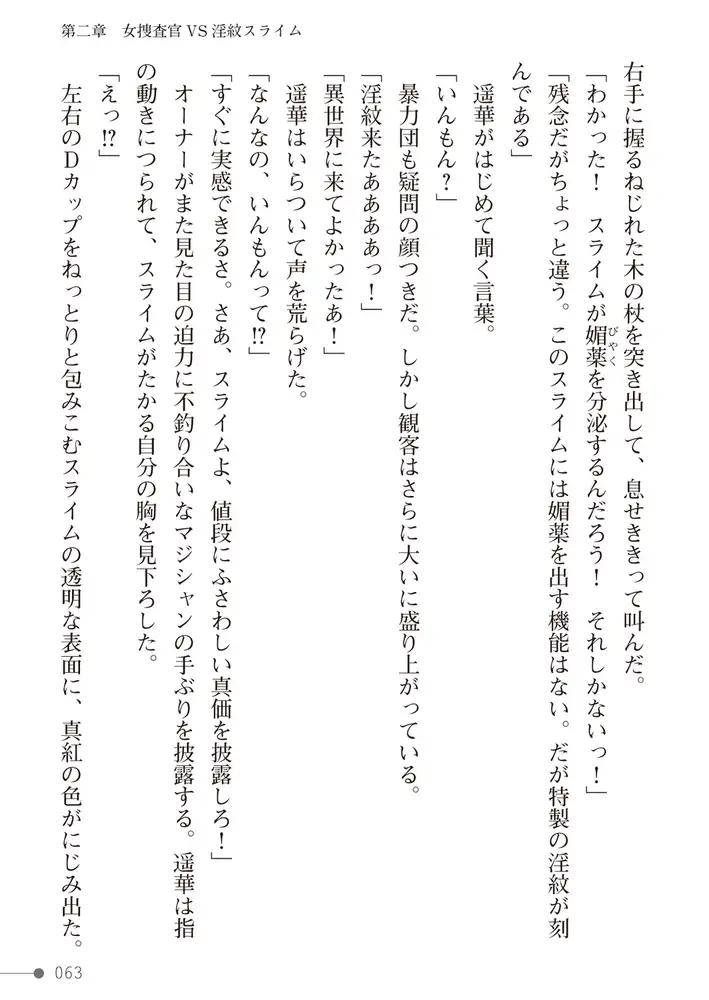 第二章　女捜査官VS淫紋スライム
右手に握るねじれた木の杖を突き出して、息せききって叫んだ。
「わかった！　スライムが媚薬を分泌するんだろう！　それしかないっ！」
びやく
「残念だがちょっと違う。このスライムには媚薬を出す機能はない。だが特製の淫紋が刻
んである」
遥華がはじめて聞く言葉。
「いんもん？」
暴力団も疑問の顔つきだ。しかし観客はさらに大いに盛り上がっている。
「淫紋来たああああっ！」
「異世界に来てよかったあ！」
遥華はいらついて声を荒らげた。
「なんなの、いんもんって!?」
「すぐに実感できるさ。さあ、スライムよ、値段にふさわしい真価を披露しろ！」
オーナーがまた見た目の迫力に不釣り合いなマジシャンの手ぶりを披露する。遥華は指
の動きにつられて、スライムがたかる自分の胸を見下ろした。
「えっ!?」
左右のDカップをねっとりと包みこむスライムの透明な表面に、真紅の色がにじみ出た。
063